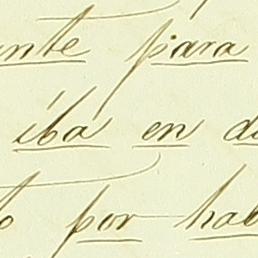 ante para
iba en de
o por hab